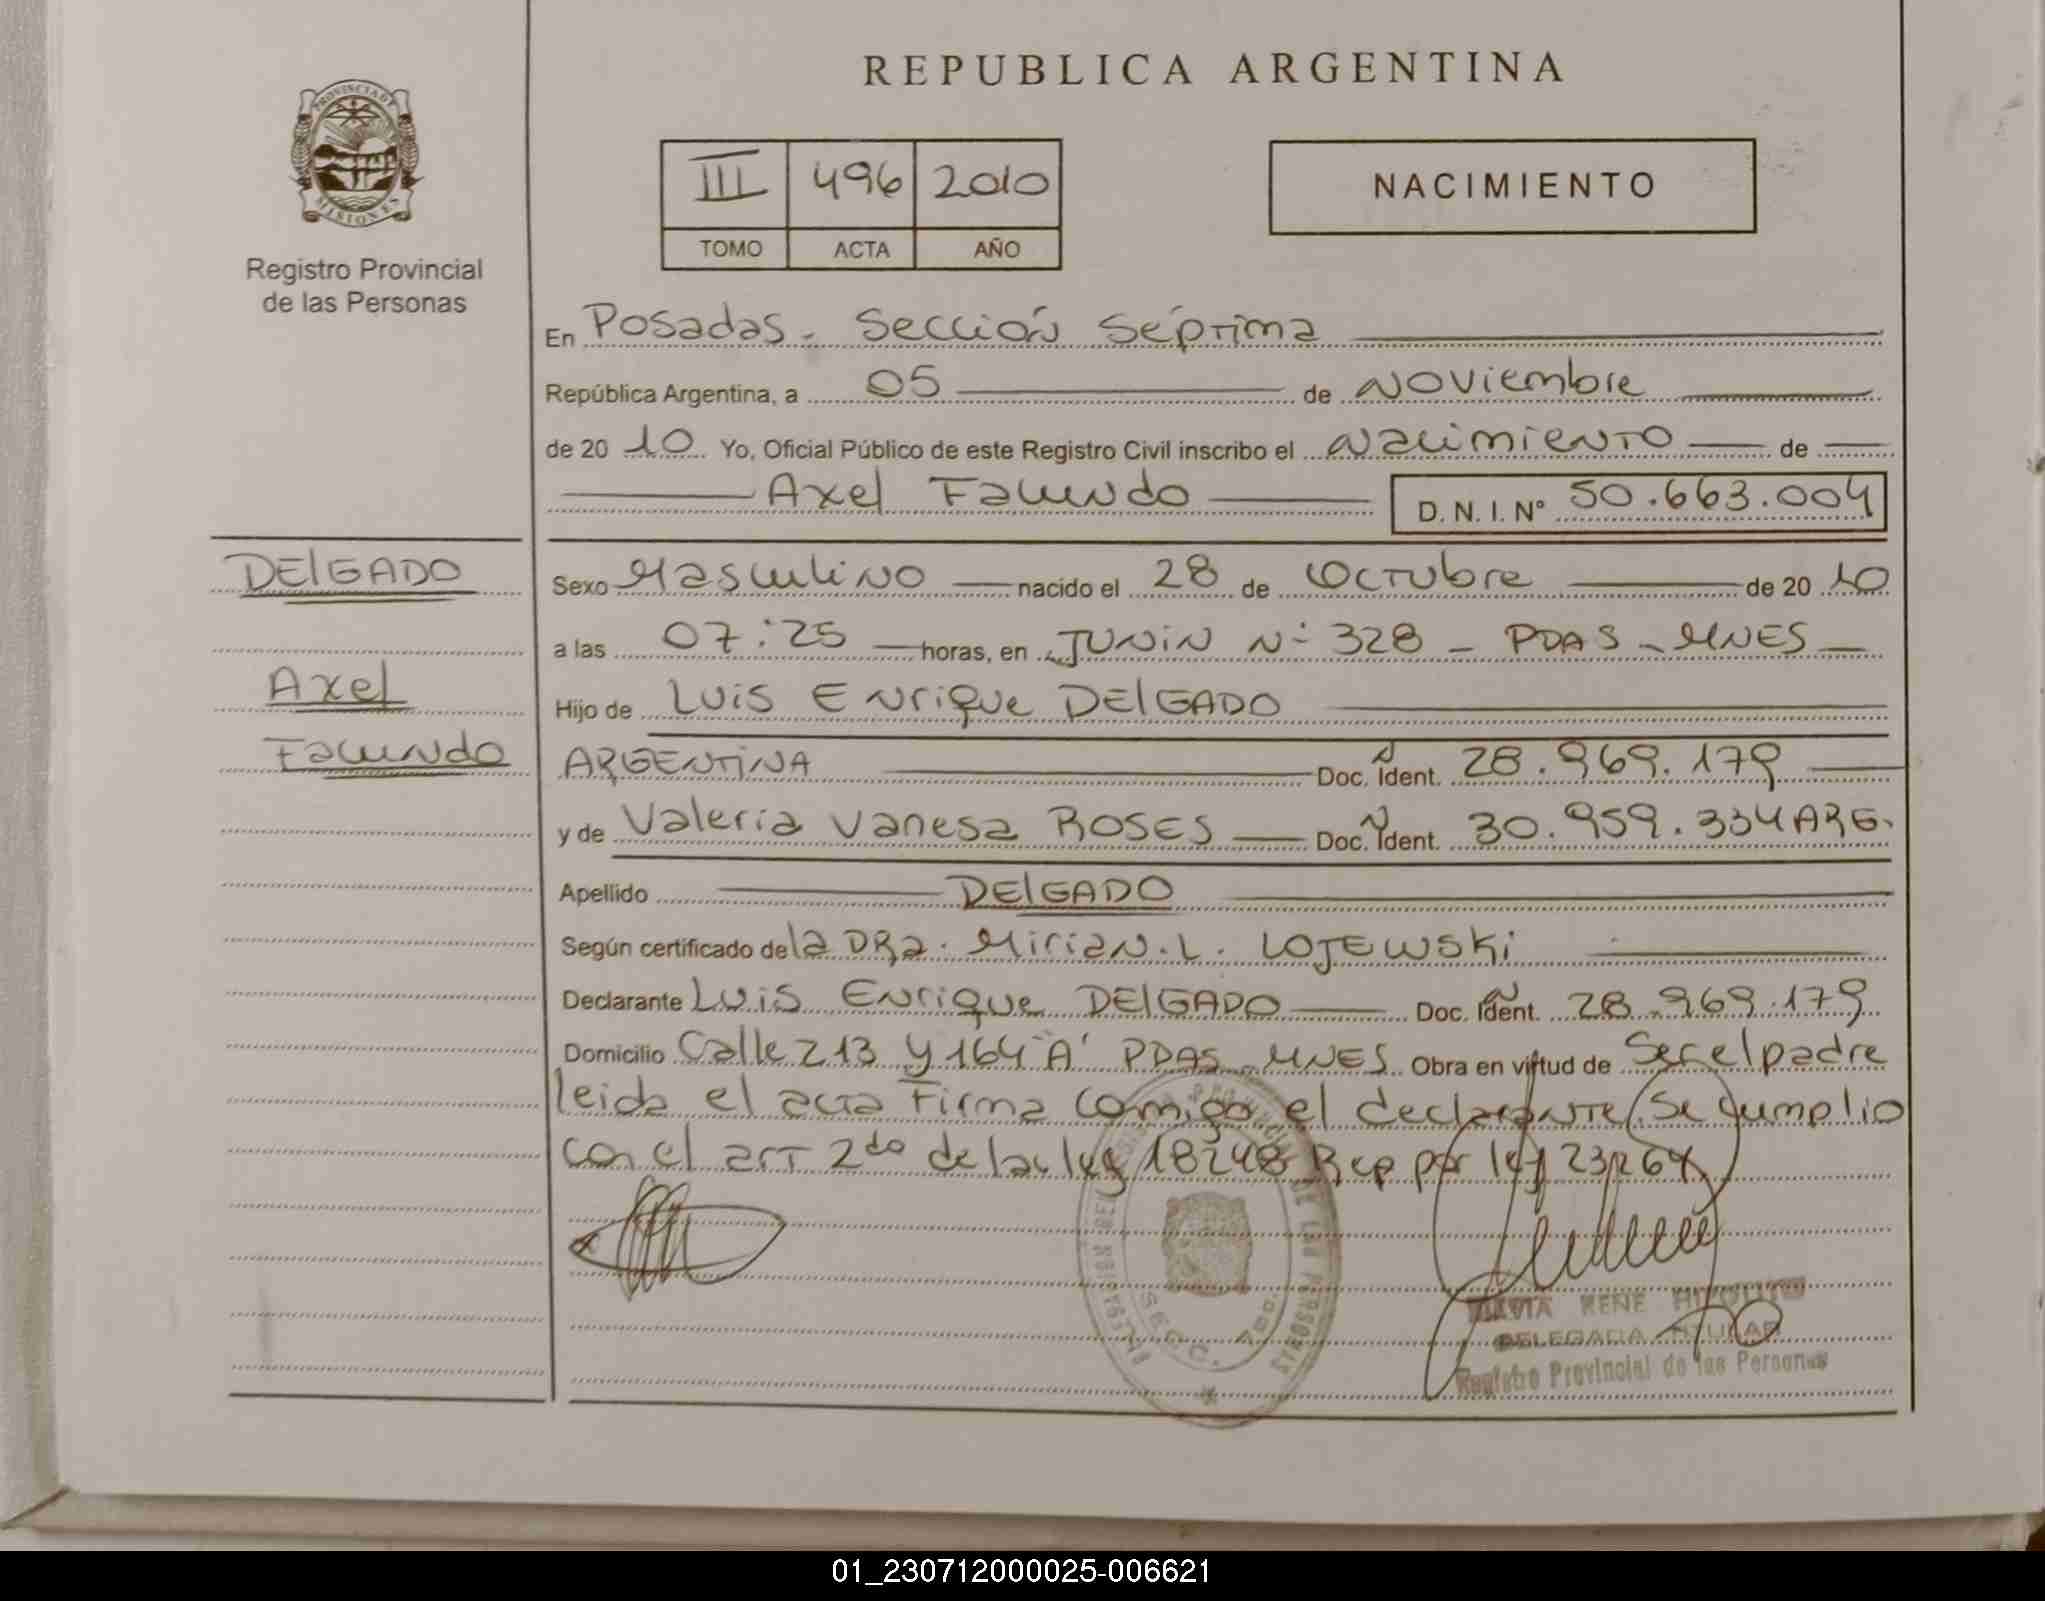 REPUBLICA ARGENTINA
PROVINCIA DE
MISIONES
Registro Provincial
de las Personas
III 496 2010
TOMO ACTA AÑO
NACIMIENTO
En Posadas - Sección Séptima
República Argentina, a 05 de Noviembre
de 2010 Yo, Oficial Público de este Registro Civil inscribo el Nacimiento de
Axel Facundo D.N.I. Nº 50.663.004
DELGADO
Axel
Facundo
Sexo Masculino nacido el 28 de Octubre de 2010
a las 07:25 horas, en JUNIN Nº 328 - PDAS - MNES
Hijo de Luis Enrique DELGADO
ARGENTINA Doc. Ñ Ident. 28.969.179
y de Valeria Vanesa ROSES Doc. Ñ Ident. 30.959.334 ARG.
Apellido DELGADO
Según certificado de la DRA. Mirian. L. LOJEWSKI
Declarante Luis Enrique DELGADO Doc. Ñ Ident. 28.969.179
Domicilio Calle 213 y 164 "A" PDAS - MNES Obra en virtud de Ser el padre
leida el acta Firma Conmigo el declarante. Se cumplio
con el art 2do de la ley 18248 Rep por ley 23264
RENE
DELEGADA TITULAR
Registro Provincial de las Personas
01_230712000025-006621